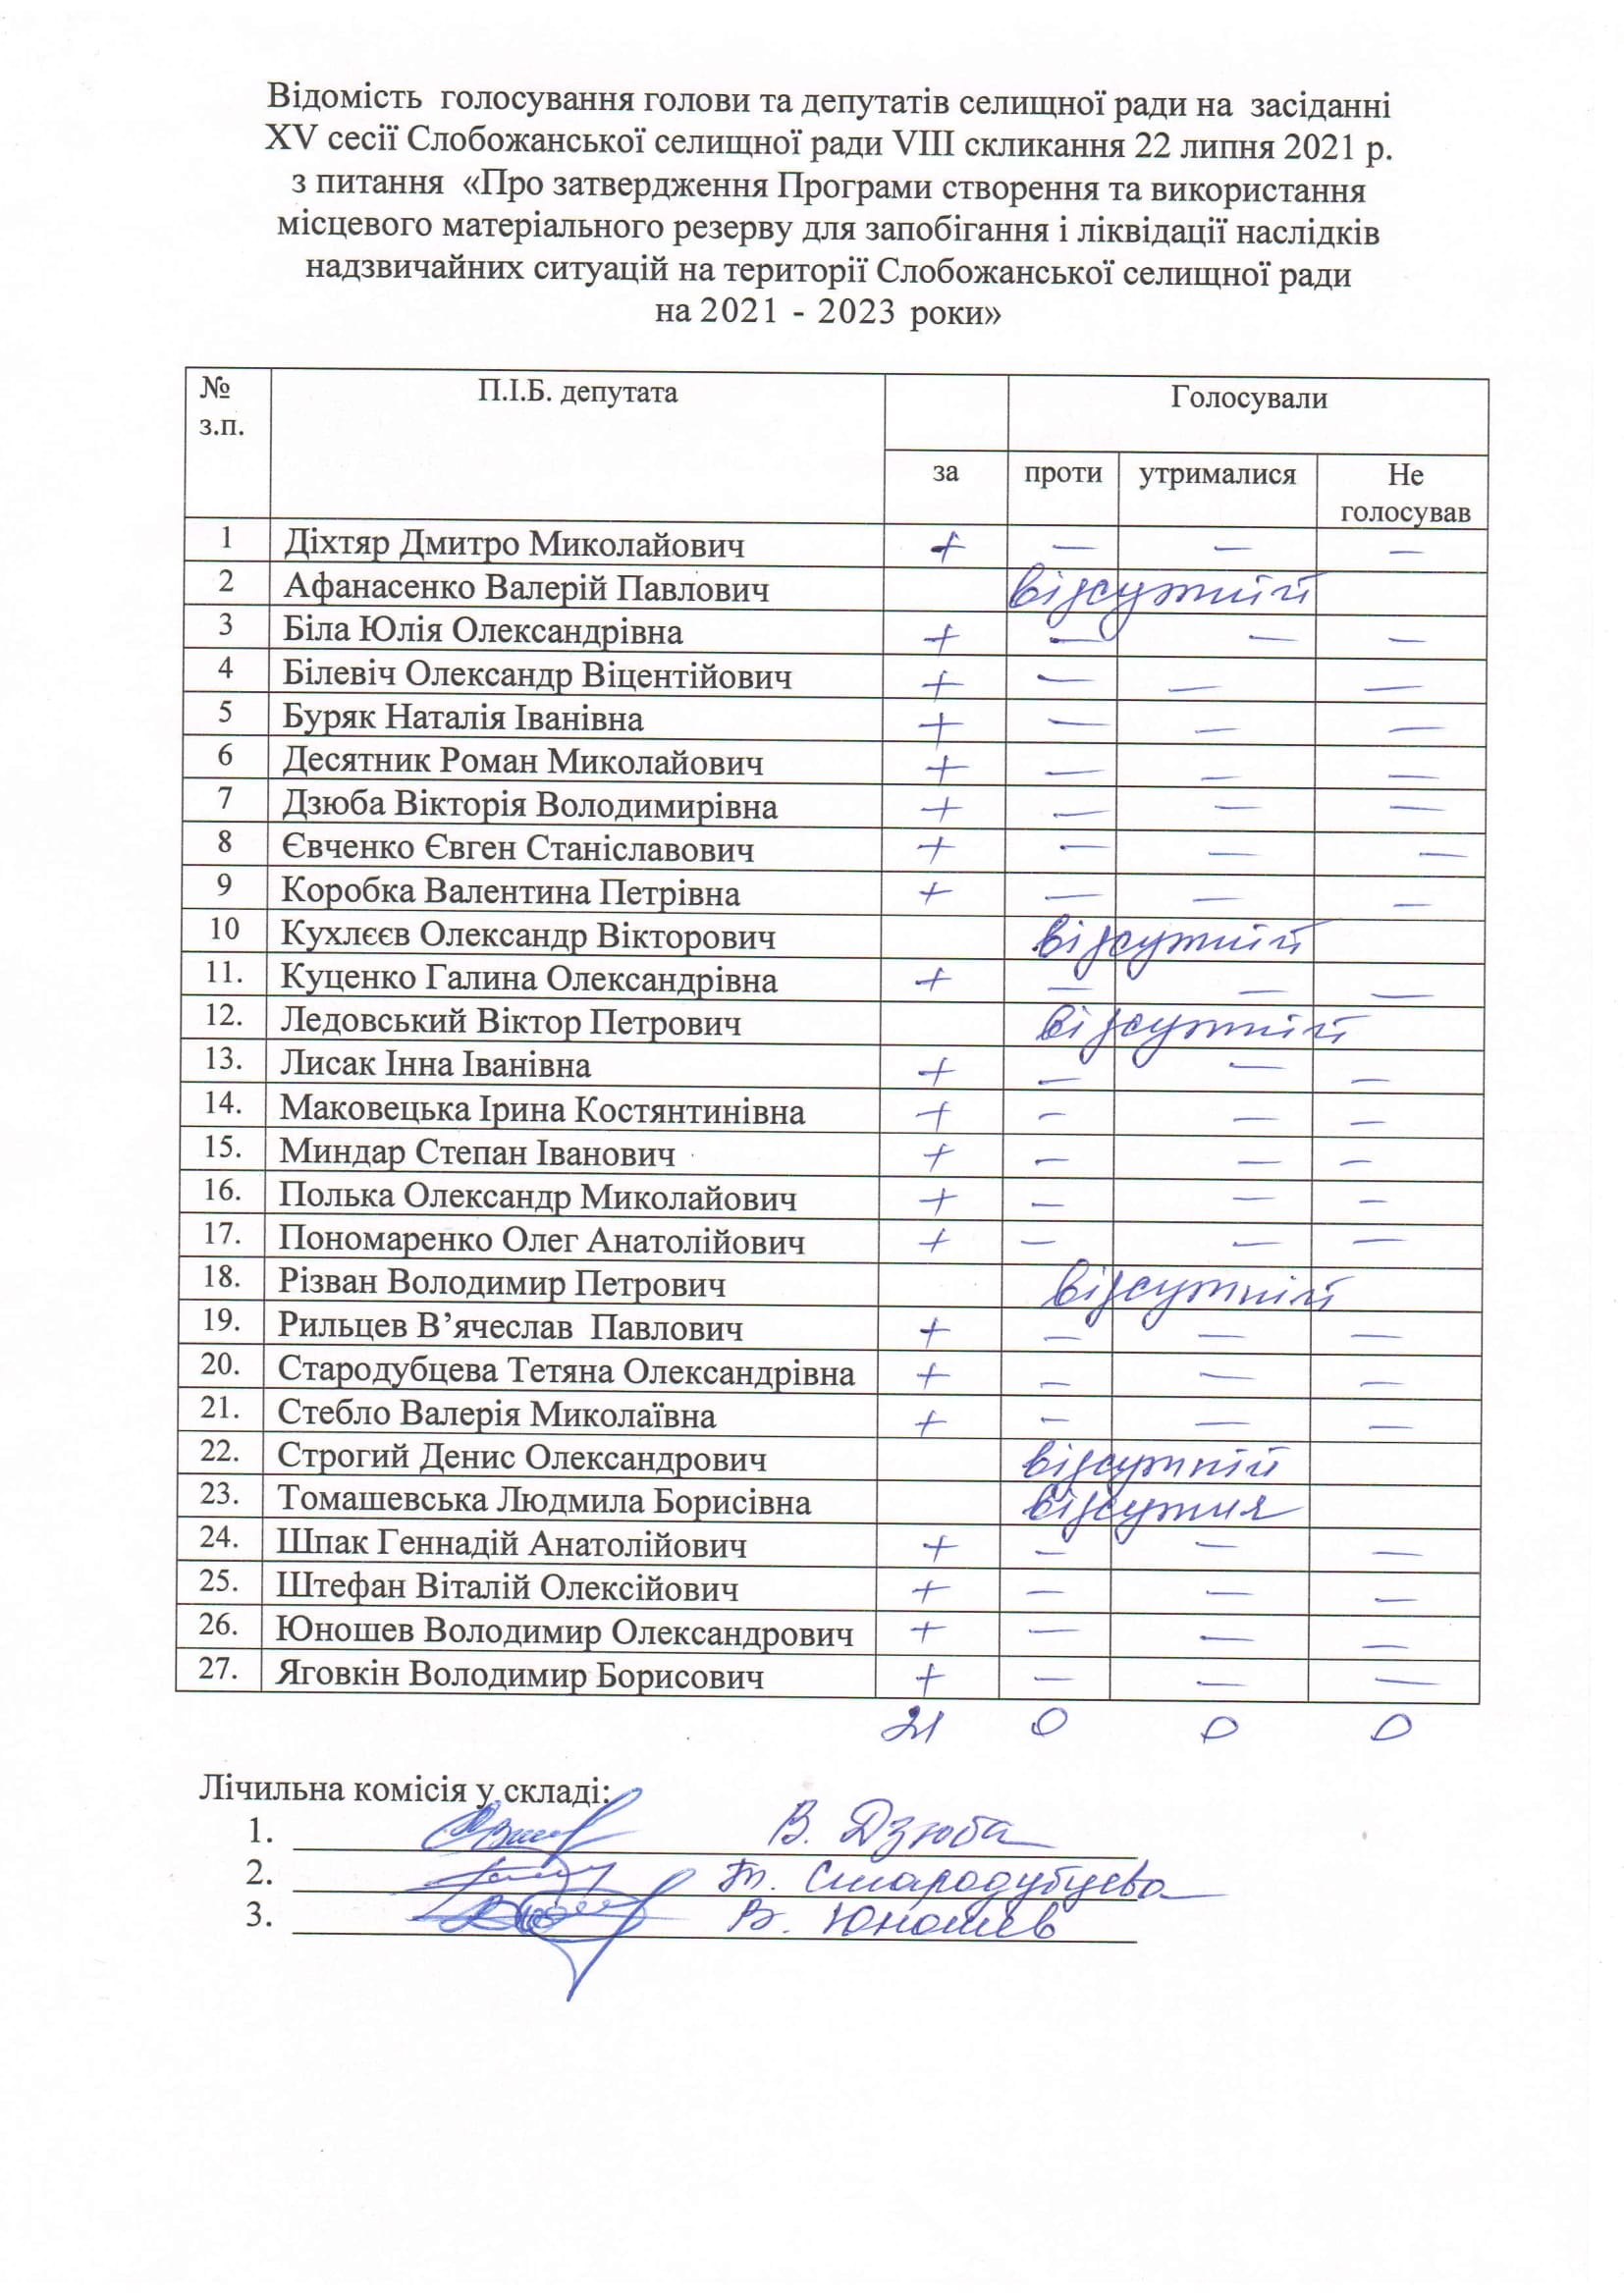 Відомість голосування голови та депутатів селищної ради на засіданні
XV сесії Слобожанської селищної ради VIII скликання 22 липня 2021 р.
з питання «Про затвердження Програми створення та використання
місцевого матеріального резерву для запобігання і ліквідації наслідків
надзвичайних ситуацій на території Слобожанської селищної ради
на 2021 - 2023 роки»
№ з.п. П.І.Б. депутата Голосували
за проти утрималися Не голосував
1 Діхтяр Дмитро Миколайович + — — —
2 Афанасенко Валерій Павлович відсутній
3 Біла Юлія Олександрівна + — — —
4 Білевіч Олександр Віцентійович + — — —
5 Буряк Наталія Іванівна + — — —
6 Десятник Роман Миколайович + — — —
7 Дзюба Вікторія Володимирівна + — — —
8 Євченко Євген Станіславович + — — —
9 Коробка Валентина Петрівна + — — —
10 Кухлєєв Олександр Вікторович відсутній
11. Куценко Галина Олександрівна + — — —
12. Ледовський Віктор Петрович відсутній
13. Лисак Інна Іванівна + — — —
14. Маковецька Ірина Костянтинівна + — — —
15. Миндар Степан Іванович + — — —
16. Полька Олександр Миколайович + — — —
17. Пономаренко Олег Анатолійович + — — —
18. Різван Володимир Петрович відсутній
19. Рильцев В’ячеслав Павлович + — — —
20. Стародубцева Тетяна Олександрівна + — — —
21. Стебло Валерія Миколаївна + — — —
22. Строгий Денис Олександрович відсутній
23. Томашевська Людмила Борисівна відсутня
24. Шпак Геннадій Анатолійович + — — —
25. Штефан Віталій Олексійович + — — —
26. Юношев Володимир Олександрович + — — —
27. Яговкін Володимир Борисович + — — —
21 0 0 0
Лічильна комісія у складі:
1. В. Дзюба
2. Т. Стародубцева
3. В. Юношев